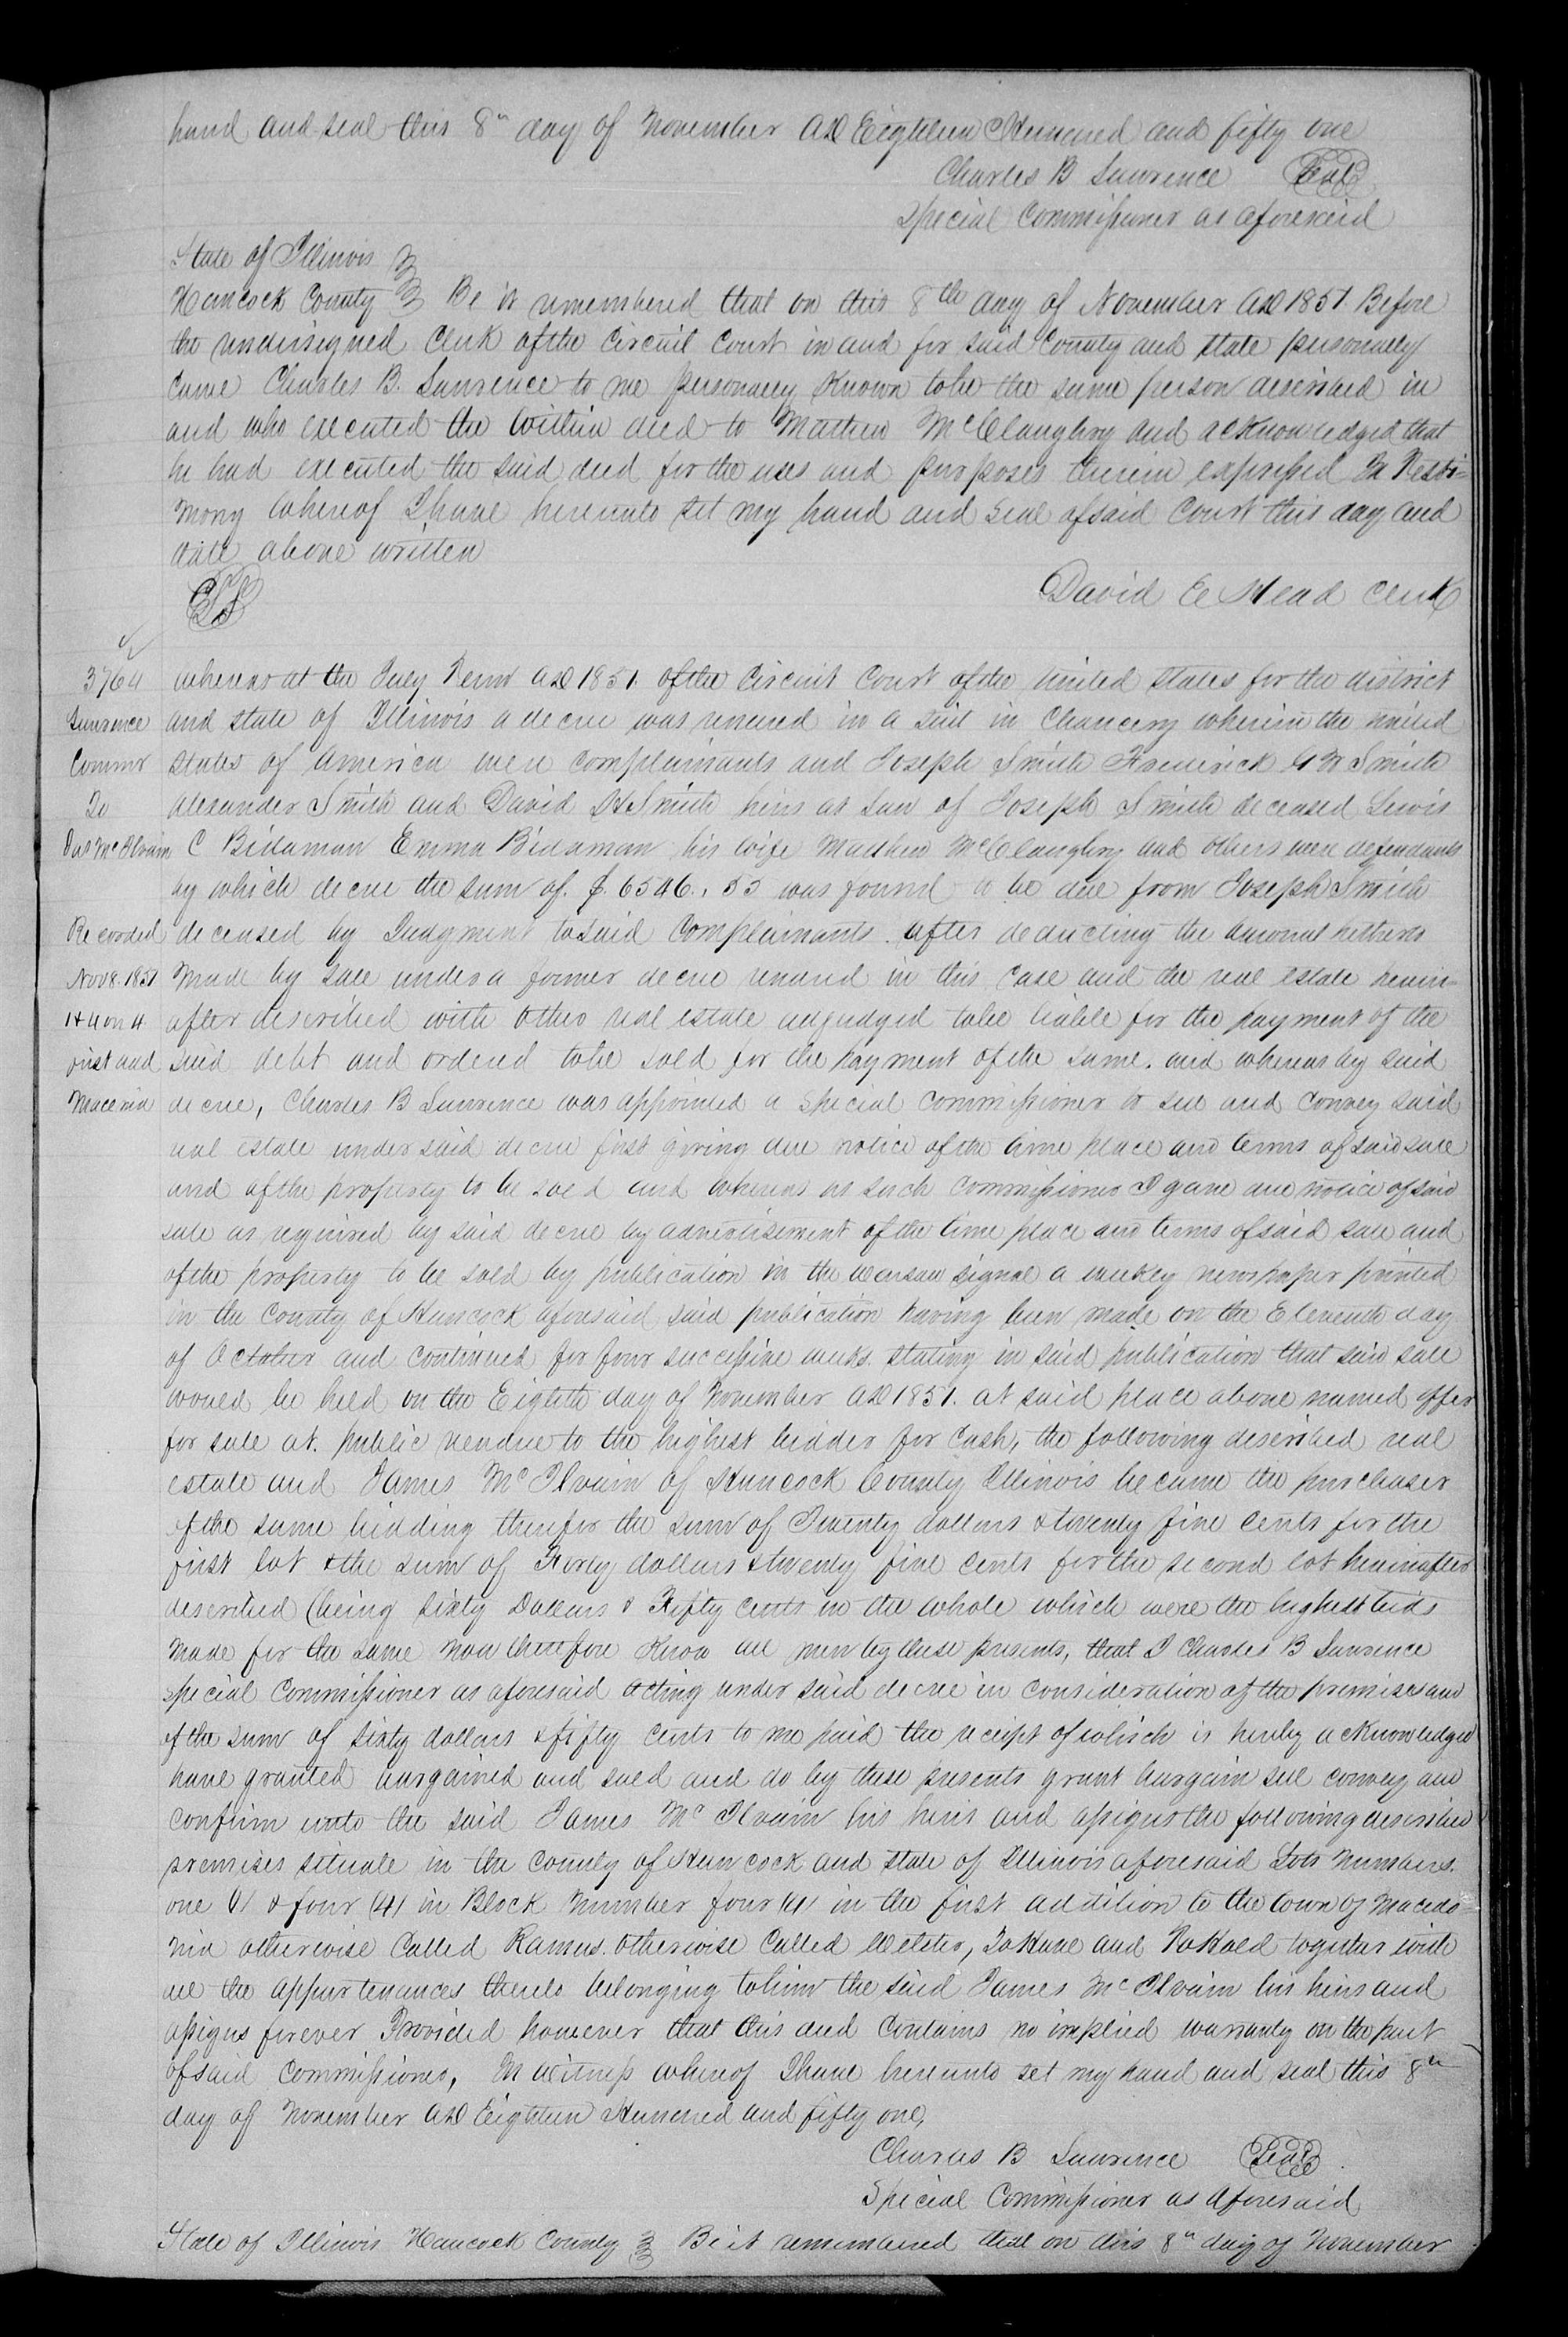 hand and seal this 8th day of November AD Eighteen Hundred and fifty one
Charles B Lawrence Seal
Special Commissioner as aforesaid
State of Illinois
Hancock County Be it remembered that on this 8th day of November AD 1851. Before
the undersigned Clerk of the Circuit Court in and for said County and state personally
Came Charles B. Lawrence to me personally Known to be the same person described in
and who executed the within deed to Mathew McClaughry and acknowledged that
he had executed the said deed for the uses and purposes therein expressed In Testi=
mony whereof I have hereunto set my hand and Seal of said Court this day and
date above written
LS
David E Head Clerk
3764 whereas at the July Term AD 1851. of the Circuit Court of the United States for the district
Lawrence and state of Illinois a decree was renered in a suit in Chancery wherein the united
Commr states of America were complainants and Joseph Smith Frederick G W Smith
To Alexander Smith and David H Smith heirs at Law of Joseph Smith deceased Lewis
Jas McIlvain C Bidaman Emma Bidaman his wife Mathew McClaughry and others were defendants
by which decree the sum of $6546.,55 was found to be due from Joseph Smith
Recorded deceased by Judgment to said Complainants after deducting the amount hitherto
Nov 8. 1851 made by sale under a former decree renered in this case and the real estate herein=
1 & 4 on 4 after described with other real estate adjudged to be liable for the payment of the
first add said debt and ordered to be sold for the payment of the same. and whereas by said
Macedonia decree, Charles B Lawrence was appointed a special commissioner to sell and convey said
real estate under said decree first giving due notice of the time place and terms of said sale
and of the property to be sold and whereas as such Commissioner I gave due notice of said
sale as required by said decree by advertisement of the time place and terms of said sale and
of the property to be sold by publication in the Warsaw Signal a weekly newspaper printed
in the County of Hancock aforesaid said publication having been made on the Eleventh day
of October and continued for four successive weeks. stating in said publication that said sale
would be held on the Eighth day of November AD 1851. at said place above named offer
for sale at public vendue to the highest bidder for Cash, the following described real
estate and James McIlvain of Hancock County Illinois became the purchaser
of the same bidding therefor the sum of Twenty dollars & twenty five cents for the
first lot & the sum of Forty dollars & twenty five cents for the second lot hereinafter
described (being sixty Dollars & Fifty cents in the whole which were the highest bids
made for the same now therefore Know all men by these presents, that I Charles B Lawrence
special Commissioner as aforesaid acting under said decree in consideration of the premises and
of the sum of sixty dollars & fifty cents to me paid the receipt of which is hereby acknowledged
have granted bargained and sold and do by these presents grant bargain sell convey and
confirm unto the said James McIlvain his heirs and assigns the following described
premises situate in the County of Hancock and state of Illinois aforesaid Lots Numbers.
one (1) & four (4) in Block Number four (4) in the first addition to the town of Macedo=
nia otherwise Called Ramus. otherwise Called Webster, To Have and To Hold together with
all the appurtenances thereto belonging to him the said James McIlvain his heirs and
assigns forever Provided however that this deed contains no implied warranty on the part
of said Commissioner, In witness whereof I have hereunto set my hand and seal this 8th
day of November AD Eighteen Hunered and fifty one,
Charles B Lawrence Seal
Special Commissioner as Aforesaid
State of Illinois Hancock County Be it remembered that on this 8th day of November